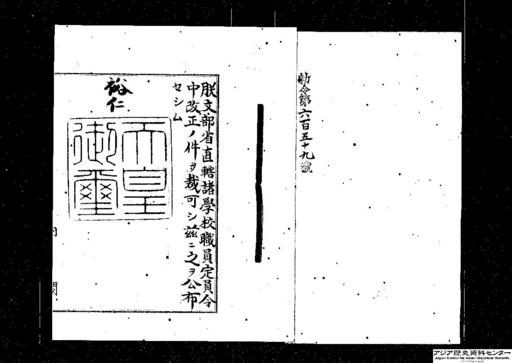 勅令第六百五十九號
朕文部省直轄諸學校職員定員令
中改正ノ件ヲ裁可シ茲ニ之ヲ公布
セシム
裕仁
天皇
御璽
アジア歴史資料センター
Japan Center for Asian Historical Records